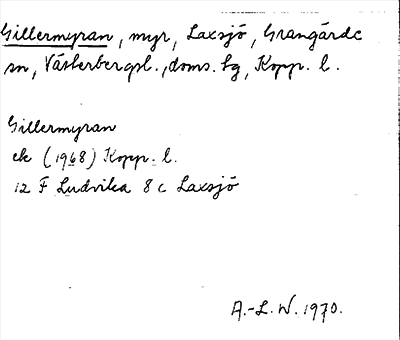 Gillermyran, myr, Laxsjö, Grangärde
sn, Västerbergsl., doms. tg, Kopp. l.
Gillermyran
ek (1968) Kopp. l.
12 F Ludvika 8 c Laxsjö
A.-L. W. 1970.